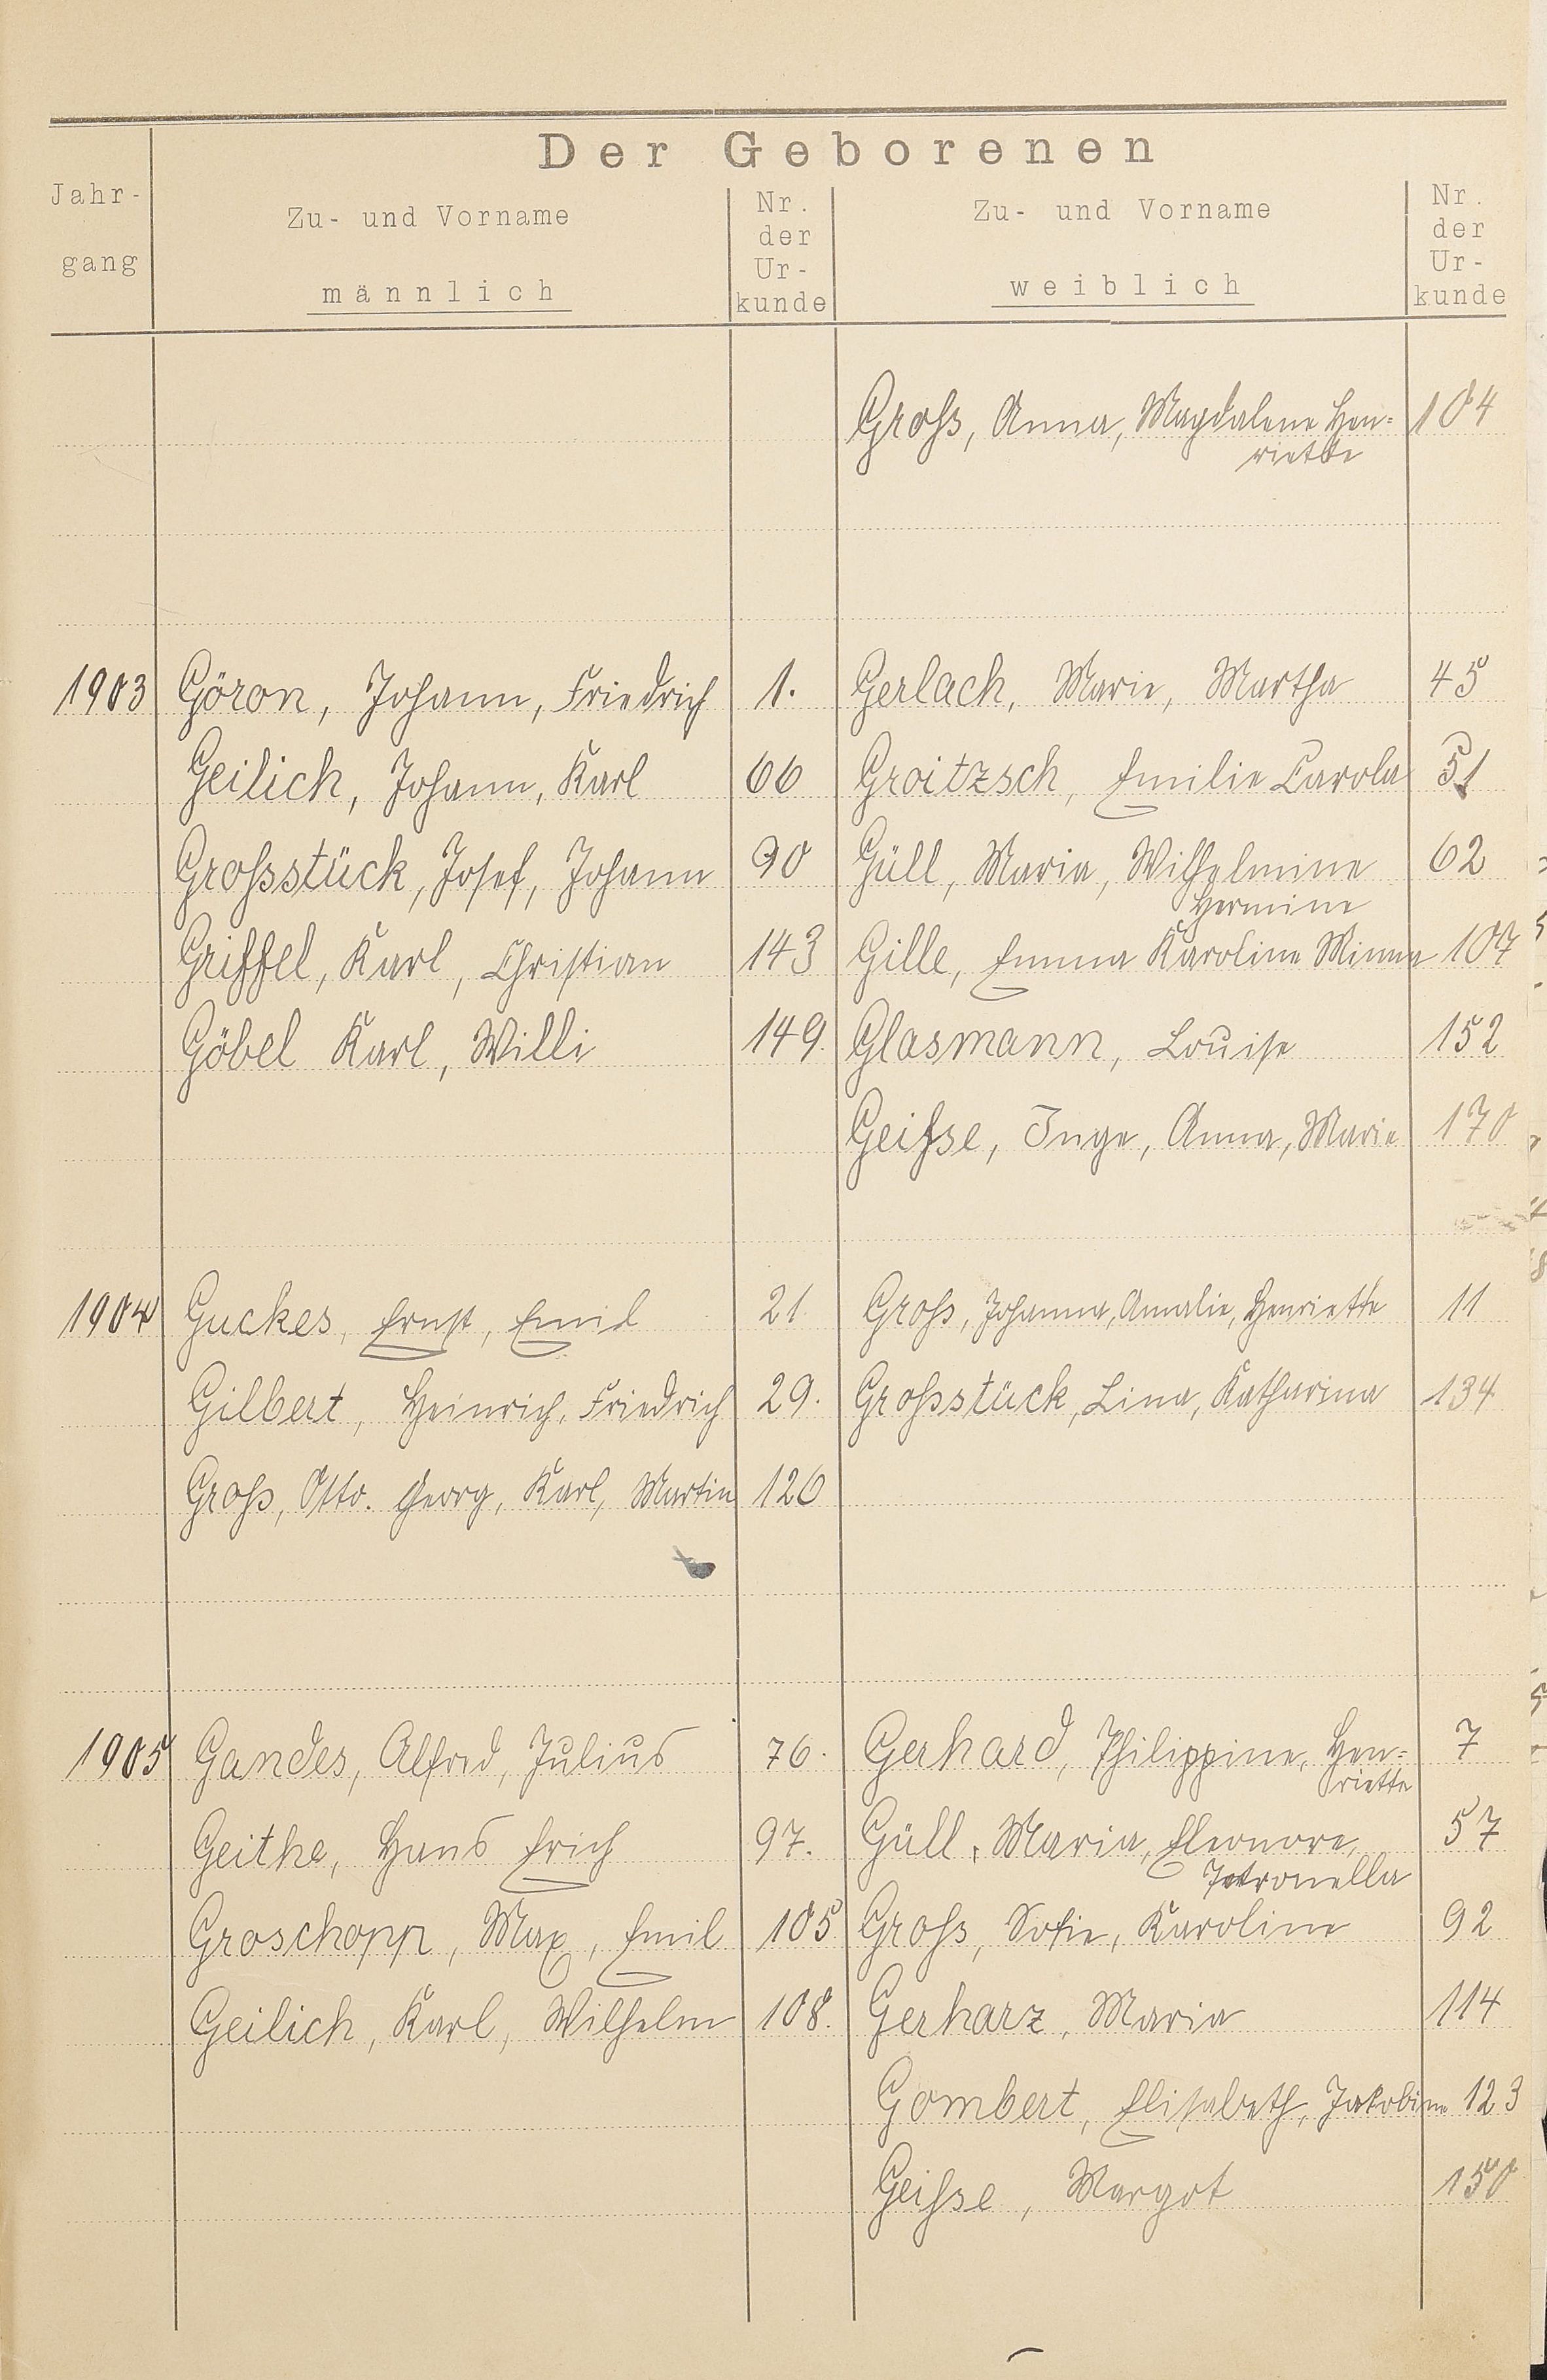 Der Geborenen
Jahr-
gang
Zu- und Vorname
männlich
Nr.
der
Ur-
kunde
Zu- und Vorname
weiblich
Nr.
der
Ur-
kunde
Groß, Anna, Magdalene Hen= 104
riette
1903 Göron, Johann, Friedrich 1. Gerlach, Marie, Martha 45
Geilich, Johann, Karl 66 Groitzsch, Emilie Carola 51
Großstück, Josef, Johann 90 Güll, Maria, Wilhelmine 62
Hermine
Griffel, Karl, Christian 143 Gille, Emma Karoline Minna 107
Göbel Karl, Willi 149. Glasmann, Louise 152
Geiße, Inge, Anna, Marie 170
1904 Guckes, Ernst, Emil 21 Groß, Johanna, Amalie, Henriette 11
Gilbert, Heinrich, Friedrich 29. Großstück, Lina, Katharina 134
Groß, Otto. Georg, Karl, Martin 126
1905 Gandes, Alfred, Julius 76. Gerhard, Philippine, Hen= 7
riette
Geithe, Hans Erich 97. Güll, Maria, Eleonore, 57
Petronella
Groschopp, Max, Emil 105 Groß, Sofie, Karoline 92
Geilich, Karl, Wilhelm 108. Gerharz, Maria 114
Gombert, Elisabeth, Jakobine 123
Geiße, Margot 150